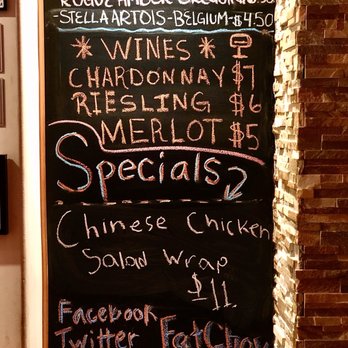 ROGUE AMBER
-STELLA ARTOIS-BELGIUM-$4.50
* WINES *
CHARDONNAY $7
RIESLING $6
MERLOT $5
Specials
Chinese Chicken
Salad Wrap
$11
Facebook
Twitter FatChow